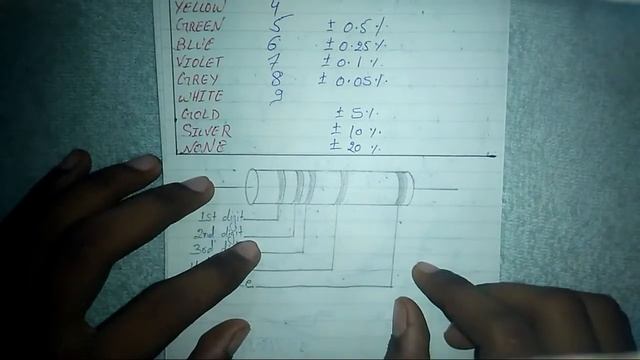 YELLOW 4
GREEN 5 ± 0.5 %
BLUE 6 ± 0.25 %
VIOLET 7 ± 0.1 %
GREY 8 ± 0.05 %
WHITE 9
GOLD ± 5 %
SILVER ± 10 %
NONE ± 20 %
1st digit
2nd digit
3rd